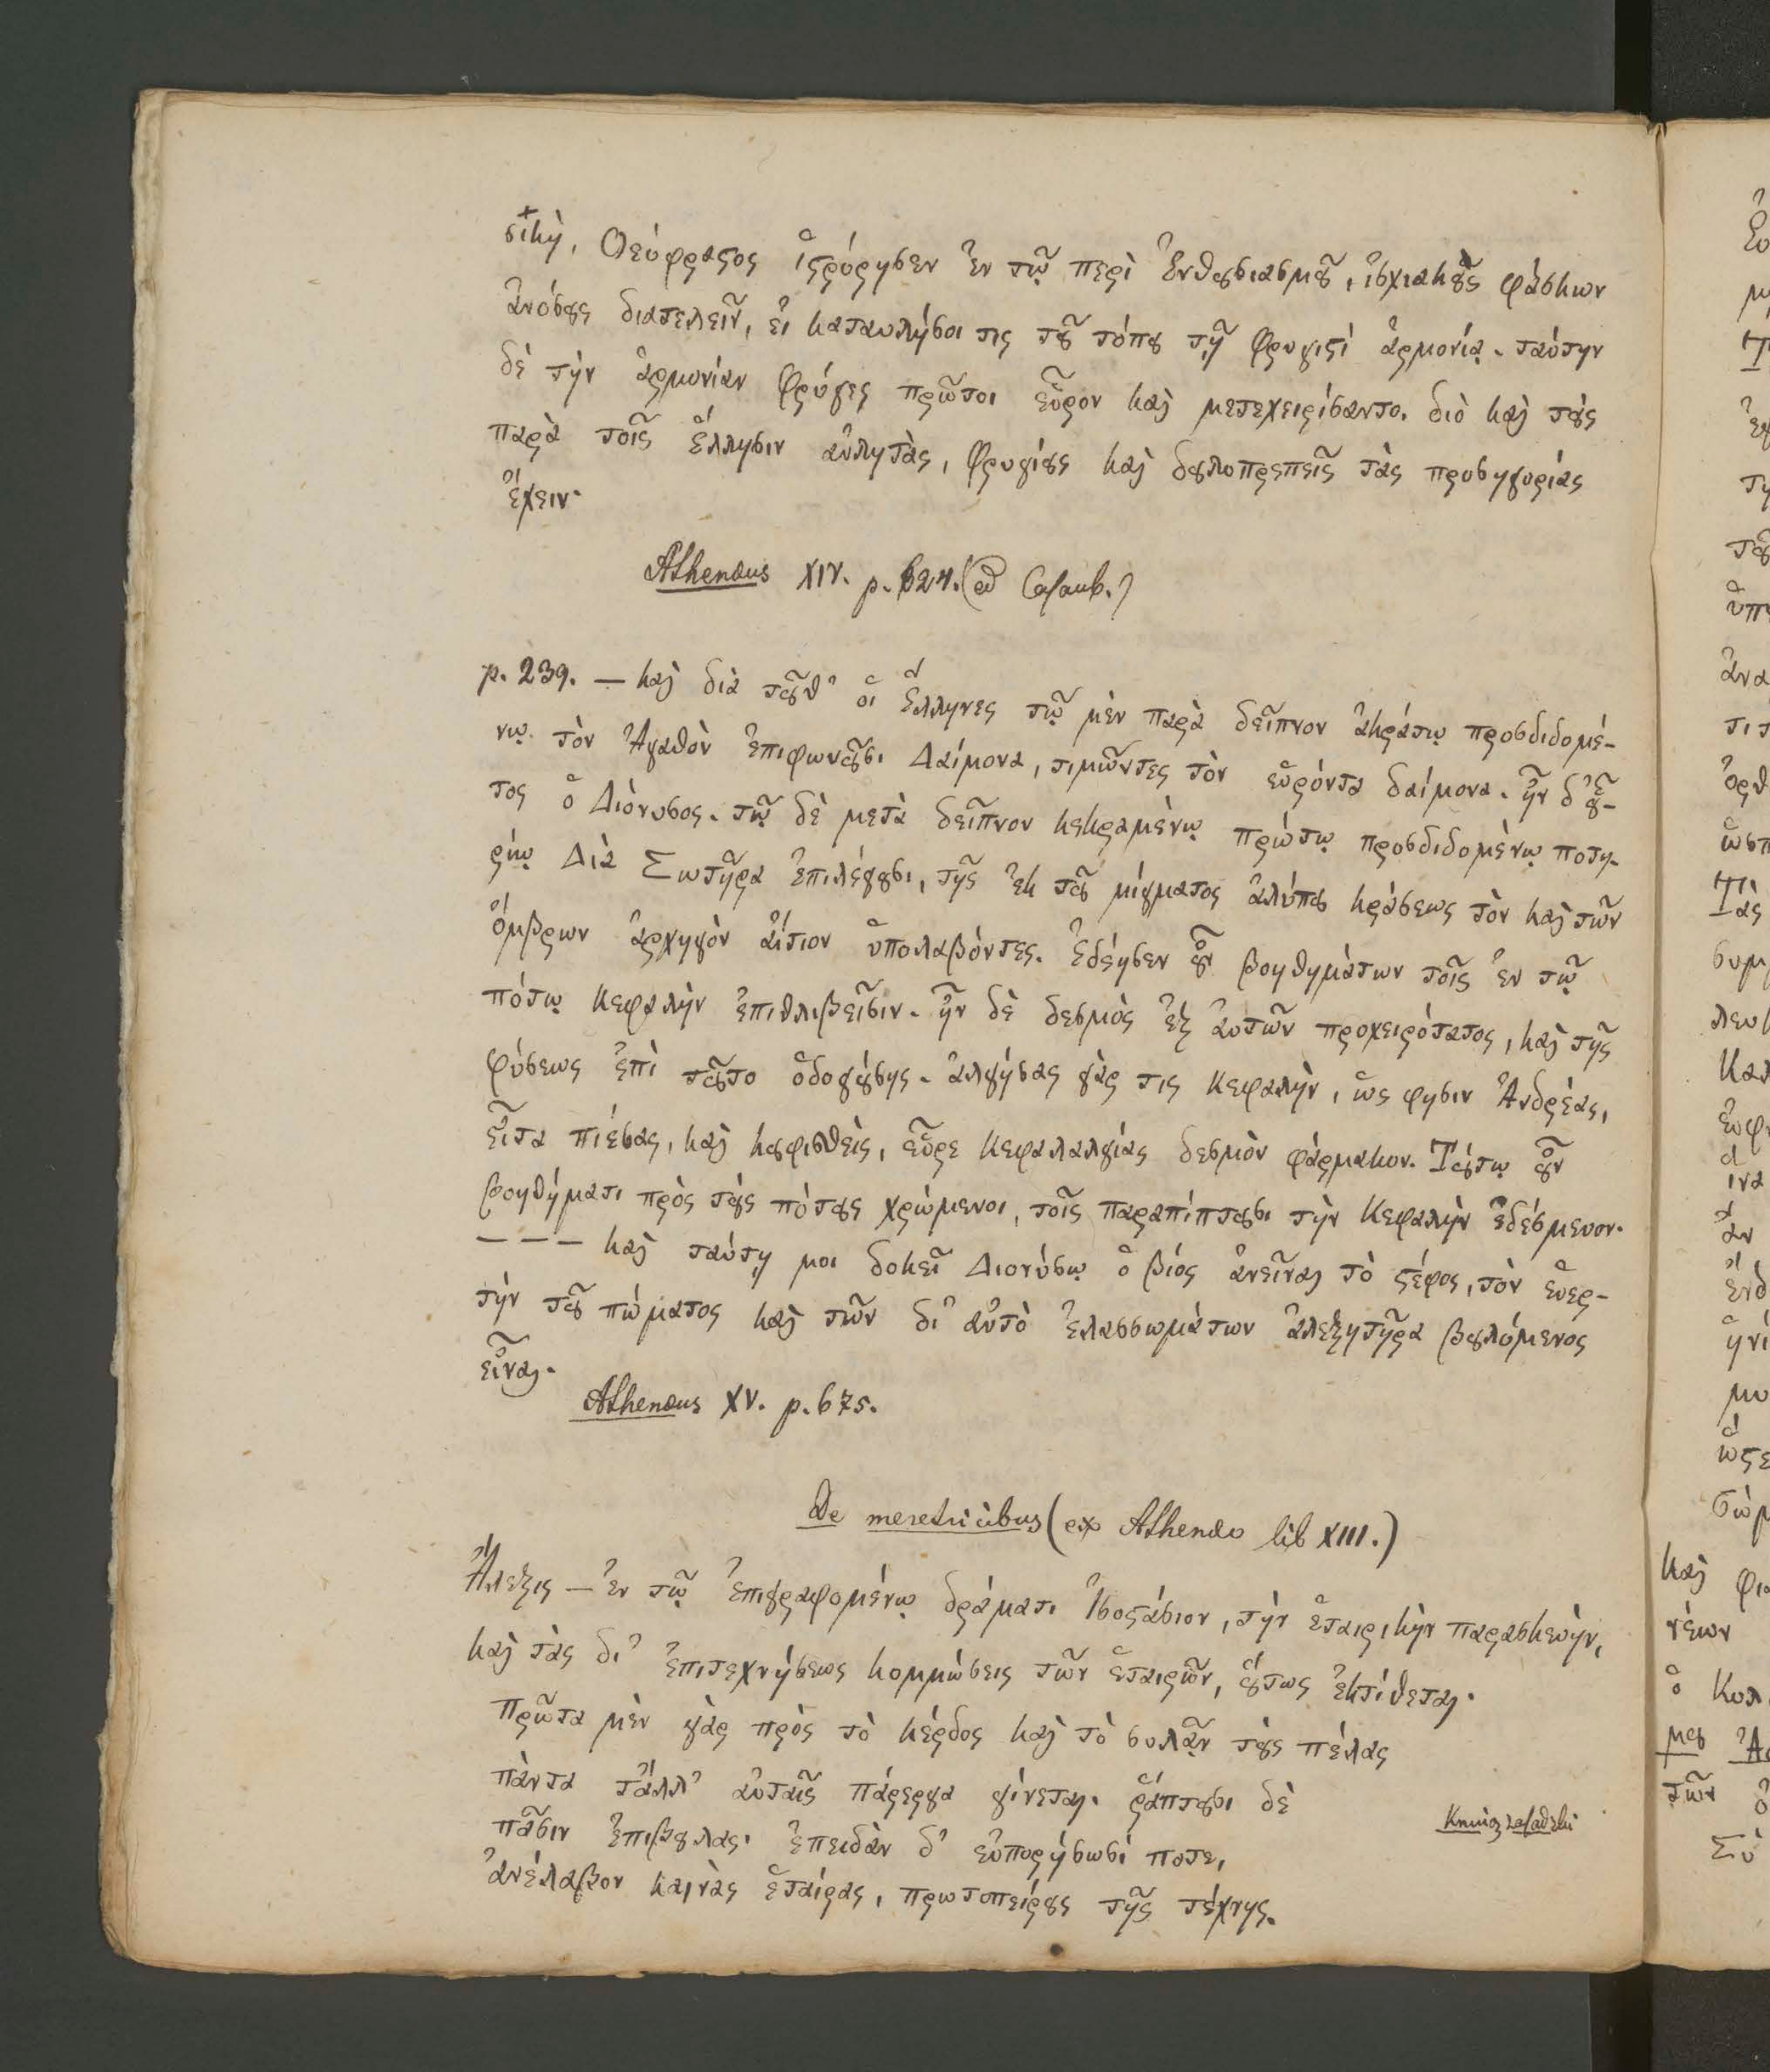 σικὴ, Θεόφραςος ἱςόρησεν ἐν τῷ περὶ Ἐνθȣσιασμȣ͂, ἰσχιακȣ̀ς φάσκων
ἀνόσȣς διατελεῖν, εἰ καταυλήσοι τις τȣ͂ τόπȣ τῇ Φρυγιςὶ ἁρμονίᾳ. ταύτην
δὲ τὴν ἁρμονίαν Φρύγες πρῶτοι εὗρον καὶ μετεχειρίσαντο. διὸ καὶ τȣ̀ς
παρὰ τοῖς ἕλλησιν αὐλητὰς, Φρυγίȣς καὶ δȣλοπρεπεῖς τὰς προσηγορίας
ἔχειν.
Athenæus XIV. p. 624. (ed Casaub.)
p. 239. — καὶ διὰ τȣ͂θ' οἱ Ἕλληνες τῷ μὲν παρὰ δεῖπνον ἀκράτῳ προσδιδομέ-
νῳ τὸν Ἀγαθὸν ἐπιφωνȣ͂σι Δαίμονα, τιμῶντες τὸν εὑρόντα δαίμονα. ἦν δ' ȣ͗͂-
τος ὁ Διόνυσος. τῷ δὲ μετὰ δεῖπνον κεκραμένῳ πρώτῳ προσδιδομένῳ ποτη-
ρίῳ Δία Σωτῆρα ἐπιλέγȣσι, τῆς ἐκ τȣ͂ μίγματος ἀλύπȣ κράσεως τὸν καὶ τῶν
ὄμβρων ἀρχηγὸν αἴτιον ὑπολαβόντες. Ἐδέησεν ȣ͗͂ν βοηθημάτων τοῖς ἐν τῷ
πότῳ κεφαλὴν ἐπιθλιβεῖσιν. ἦν δὲ δεσμὸς ἐξ αὐτῶν προχειρότατος, καὶ τῆς
φύσεως ἐπὶ τȣ͂το ὁδογȣ́σης. ἀλγήσας γὰρ τις κεφαλὴν, ὥς φησιν Ἀνδρέας,
εἶτα πιέσας, καὶ κȣφισθεὶς, εὗρε κεφαλαλγίας δεσμὸν φάρμακον. Τȣ́τῳ ȣ͗͂ν
βοηθήματι πρὸς τȣ̀ς πότȣς χρώμενοι, τοῖς παραπίπτȣσι τὴν κεφαλὴν ἐδέσμευον.
— — — καὶ ταύτῃ μοι δοκεῖ Διονύσῳ ὁ βίος ἀνεῖναι τὸ ςέφος, τὸν εὑρε-
τὴν τȣ͂ πώματος καὶ τῶν δι' αὐτὸ ἐλασσωμάτων ἀλεξητῆρα βȣλόμενος
εἶναι.
Athenæus XV. p. 675.
De meretricibus (ex Athenæo lib XIII.)
Ἄλεξις — ἐν τῷ ἐπιγραφομένῳ δράματι Ἰσοςάσιον, τὴν ἑταιρικὴν παρασκευὴν,
καὶ τὰς δι' ἐπιτεχνήσεως κομμώσεις τῶν ἑταιρῶν, ȣ͕́τως ἐκτίθεται.
Πρῶτα μὲν γὰρ πρὸς τὸ κέρδος καὶ τὸ συλᾷν τȣ̀ς πέλας
πάντα τἄλλ' αὐταῖς πάρεργα γίνεται. ῥάπτȣσι δὲ
πᾶσιν ἐπιβȣλας. ἐπειδὰν δ' εὐπορήσωσί ποτε,
ἀνέλαβον καινὰς ἑταίρας, πρωτοπείρȣς τῆς τέχνης.